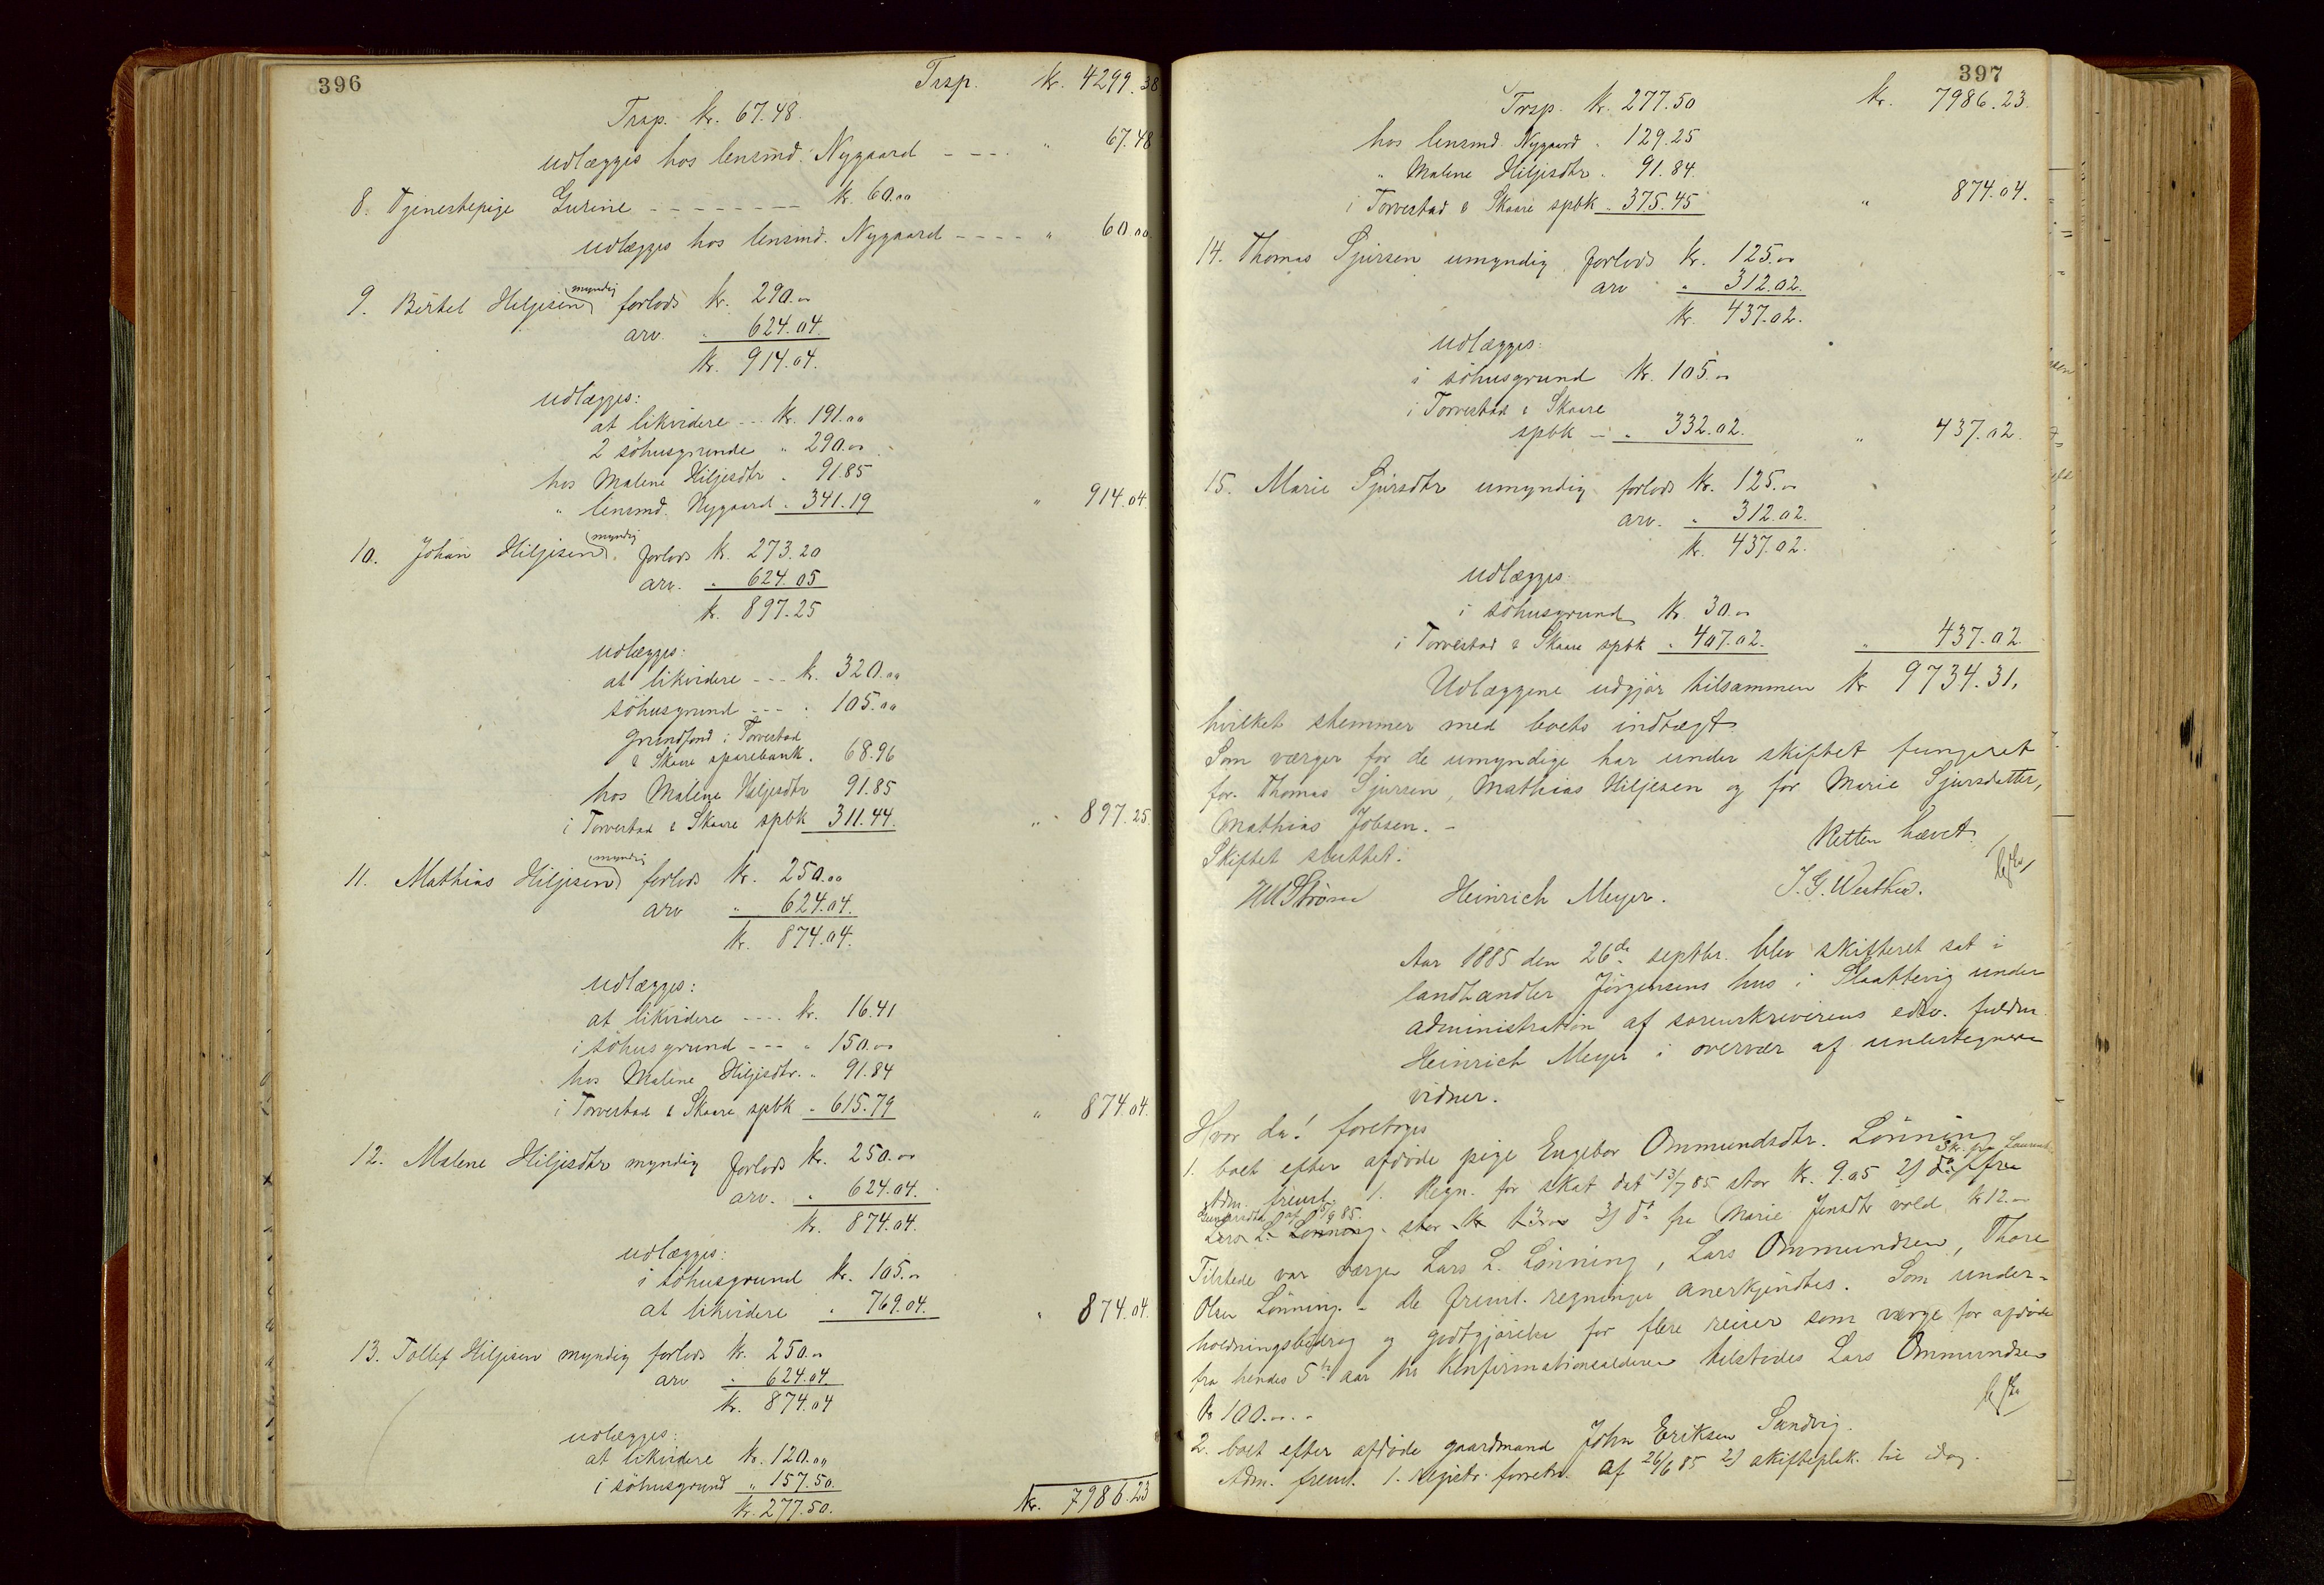 396
Trsp. kr. 4299.38
Trsp. kr. 67.48.
udlægges hos lensmd. Nygaard - - - " 67.48
8. Tjenestepige Gurine - - - - - - - - kr. 60.00
udlægges hos lensmd. Nygaard - - - - " 60.00.
9. Bertel Hiljesen myndig forlods kr. 290.00
arv. " 624.04.
kr. 914.04.
udlægges:
at likvidere - - kr. 191.00
2 söhusgrunde " 290.00
hos Malene Hiljesdtr " 91.85
" lensmd. Nygaard " 341.19 " 914.04
10. Johan Hiljesen myndig forlods kr. 273.20
arv. " 624.05
kr. 897.25
udlægges:
at likvidere - - - kr. 320.00
söhusgrund - - - " 105.00
grundfond i Torvestad
& Skaare sparebank. 68.96
hos Malene Hiljesdtr 91.85
i Torvestad & Skaare spbk 311.44. " 897.25.
11. Mathias Hiljesen myndig forlods kr. 250.00
arv " 624.04.
kr. 874.04.
udlægges:
at likvidere - - - - kr. 16.41
i söhusgrund - - - " 150.00
hos Malene Hiljesdtr. " 91.84
i Torvestad & Skaare spbk " 615.79 " 874.04.
12. Malene Hiljesdtr myndig forlods kr. 250.00
arv. " 624.04.
kr. 874.04.
udlægges:
i söhusgrund kr. 105.00
at likvidere " 769.04. " 874.04.
13. Tollef Hiljesen myndig forlods kr. 250.00
arv " 624.04.
kr. 874.04
udlægges:
at likvidere kr. 120.00
i söhusgrund " 157.50.
kr. 277.50. kr. 7986.23
397
Trsp. kr. 277.50 kr. 7986.23.
hos lensmd Nygaard " 129.25
" Malene Hiljesdtr. " 91.84.
i Torvestad & Skaare spbk " 375.45 " 874.04.
14. Thomas Sjursen umyndig forlods kr. 125.00
arv " 312.02.
kr. 437.02.
udlægges:
i söhusgrund kr. 105.00
i Torvestad & Skaare
spbk - " 332.02. " 437.02.
15. Marie Sjursdtr umyndig forlods kr. 125.00
arv. " 312.02.
kr. 437.02.
udlægges:
i söhusgrund kr. 30.00
i Torvestad & Skaare spbk " 407.02. " 437.02
Udlæggene udgjør tilsammen kr 9734.31,
hvilket stemmer med boets indtægt.
Som værger for de umyndige har under skiftet fungeret
for Thomas Sjursen, Mathias Hiljesen og for Marie Sjursdatter,
Mathias Jobsen. -
Skiftet sluttet. Retten hævet.
Heinrich Meyer.
Aar 1885 den 26de septbr. blev skifteret sat i
landhandler Jörgensens hus i Slaattevig under
administration af sorenskriverens edsv. fuldm.
Heinrich Meyer i overvær af undertegnede
vidner.
Hvor da! foretoges
1. boet efter afdøde pige Engebor Ommundsdtr. Lönning
Adm. freml. 1. Regn. for skat dat 13/7 85 stor kr. 9.05 2) do fra
Lars L. Lönning stor kr 3) do fra Marie Jensdtr kr 12.00
Tilstede var værge Lars L. Lönning, Lars Ommundsen, Thore
Olsen Lönning. - de freml. regninger anerkjendtes. Som under-
holdningsbidrag og godtgjørelse for flere reiser som værge for afdøde
fra hendes 5te aar til konfirmationsalderen tilstodes Lars Ommundsen
kr 100.00. -
2. boet efter afdøde gaardmand John Eriksen Sandvig.
Adm. freml. 1. registr. forretn. af 26/6 85 2) skifteplak. til idag.